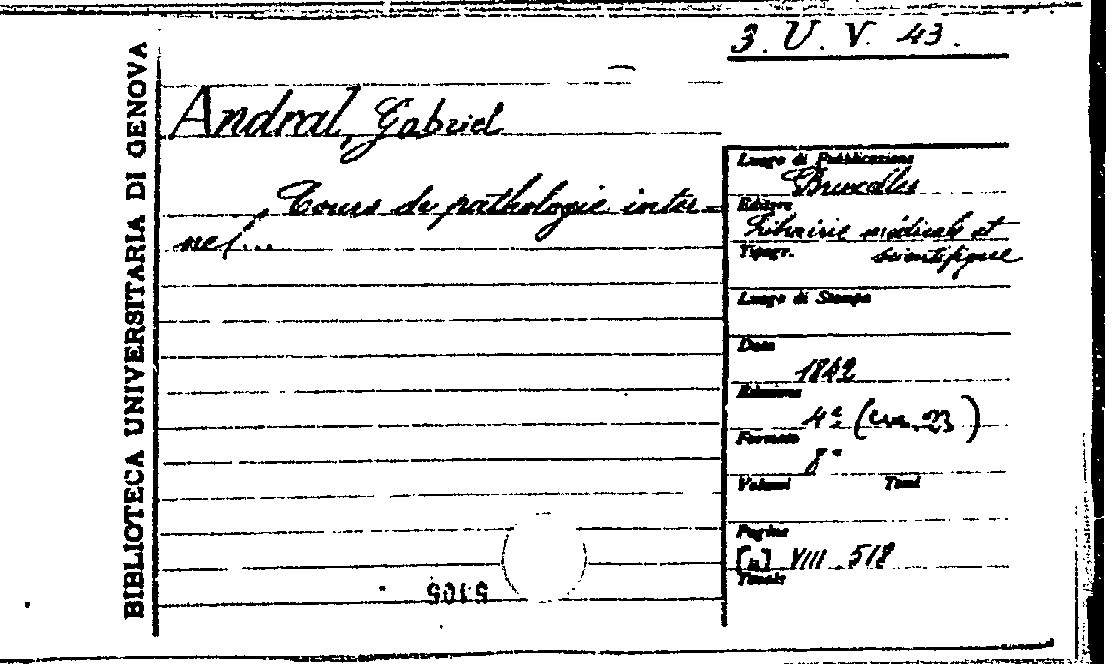 3. U. V. 43.
BIBLIOTECA UNIVERSITARIA DI GENOVA
Andral, Gabriel
Cours de pathologie inter-
ne/...
Luogo di Pubblicazione
Bruxelles
Editore
Librairie médicale et
Tipogr.
scientifique
Luogo di Stampa
Data
1842
Edizione
4ª (cm. 23)
Formato
8°
Volumi Tomi
Pagine
VIII. 518
5105